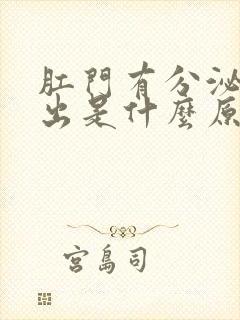 肛門有分泌
出是什麼原
宮島司